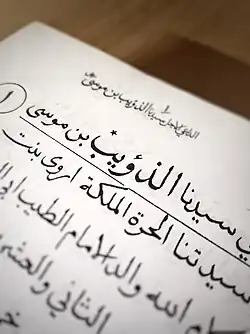 الداعي الاجل سيدنا الذؤيب بن موسى
١
ي سيدنا الذؤيب بن موسى
سيدتنا الحرة الملكة اروى بنت
الله والد الامام الطيب ابي ال
الثاني والعشر